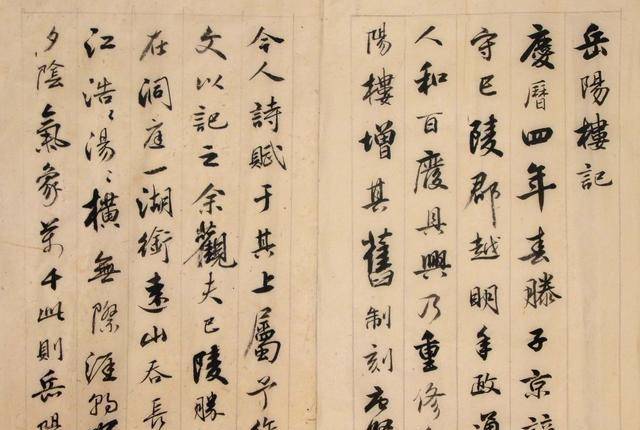 岳陽樓記
慶曆四年春滕子京謫
守巴陵郡越明年政通
人和百廢具興乃重修
陽樓增其舊制刻唐賢
今人詩賦于其上屬予作
文以記之余觀夫巴陵勝
在洞庭一湖銜遠山吞長
江浩〻湯〻橫無際涯朝
夕陰氣象萬千此則岳陽